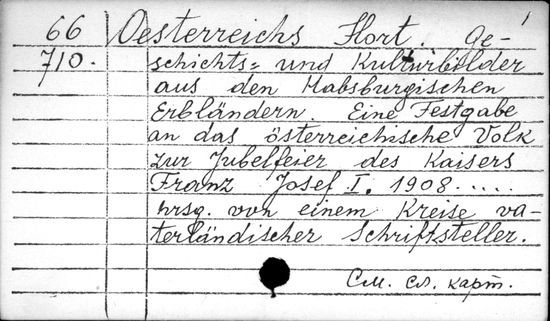 1
66 Oesterreichs Hort. Ge-
710. schichts= und Kulturbilder
aus den Habsburgischen
Erbländern. Eine Festgabe
an das österreichische Volk
zur Jubelfeier des Kaisers
Franz Josef I. 1908.....
hrsg. von einem Kreise va-
terländischer Schriftsteller.
См. сл. карт.